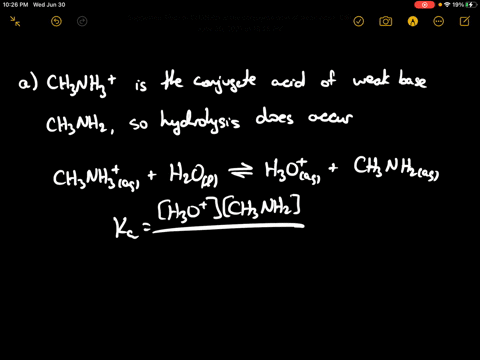 10:26 PM Wed Jun 30
19%
a) CH₃NH₃⁺ is the conjugate acid of weak base
CH₃NH₂, so hydrolysis does occur
CH₃NH₃⁺(aq) + H₂O(l) ⇌ H₃O⁺(aq) + CH₃NH₂(aq)
Ka = [H₃O⁺][CH₃NH₂]